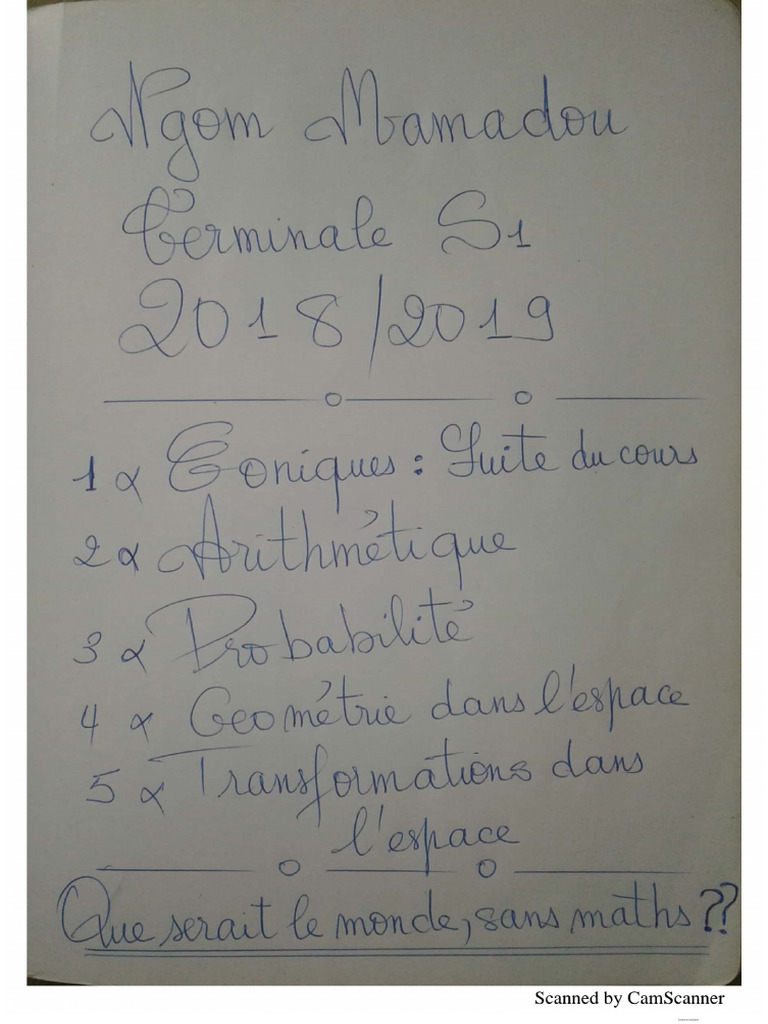 Ngom Mamadou
Terminale S1
2018/2019
1 α Coniques : Suite du cours
2 α Arithmétique
3 α Probabilité
4 α Géométrie dans l'espace
5 α Transformations dans
l'espace
Que serait le monde, sans maths ??
Scanned by CamScanner